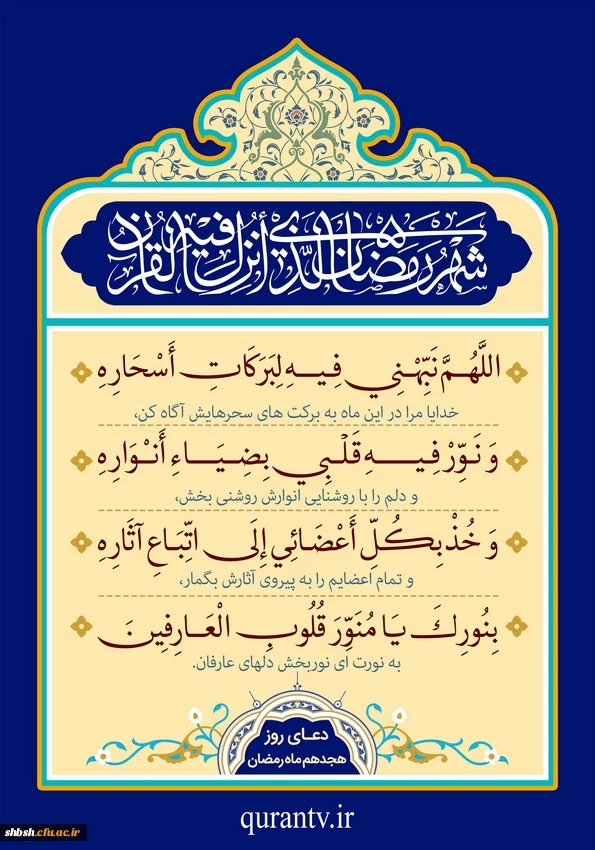 شَهْرُ رَمَضَانَ الَّذِي أُنْزِلَ فِيهِ الْقُرْآنُ
اللَّهُمَّ نَبِّهْنِي فِيهِ لِبَرَكَاتِ أَسْحَارِهِ
خدایا مرا در این ماه به برکت های سحرهایش آگاه کن،
وَ نَوِّرْ فِيهِ قَلْبِي بِضِيَاءِ أَنْوَارِهِ
و دلم را با روشنایی انوارش روشنی بخش،
وَ خُذْ بِكُلِّ أَعْضَائِي إِلَى اتِّبَاعِ آثَارِهِ
و تمام اعضایم را به پیروی آثارش بگمار،
بِنُورِكَ يَا مُنَوِّرَ قُلُوبِ الْعَارِفِينَ
به نورت ای نوربخش دلهای عارفان.
دعای روز
هجدهم ماه رمضان
qurantv.ir
shbsh.cfu.ac.ir